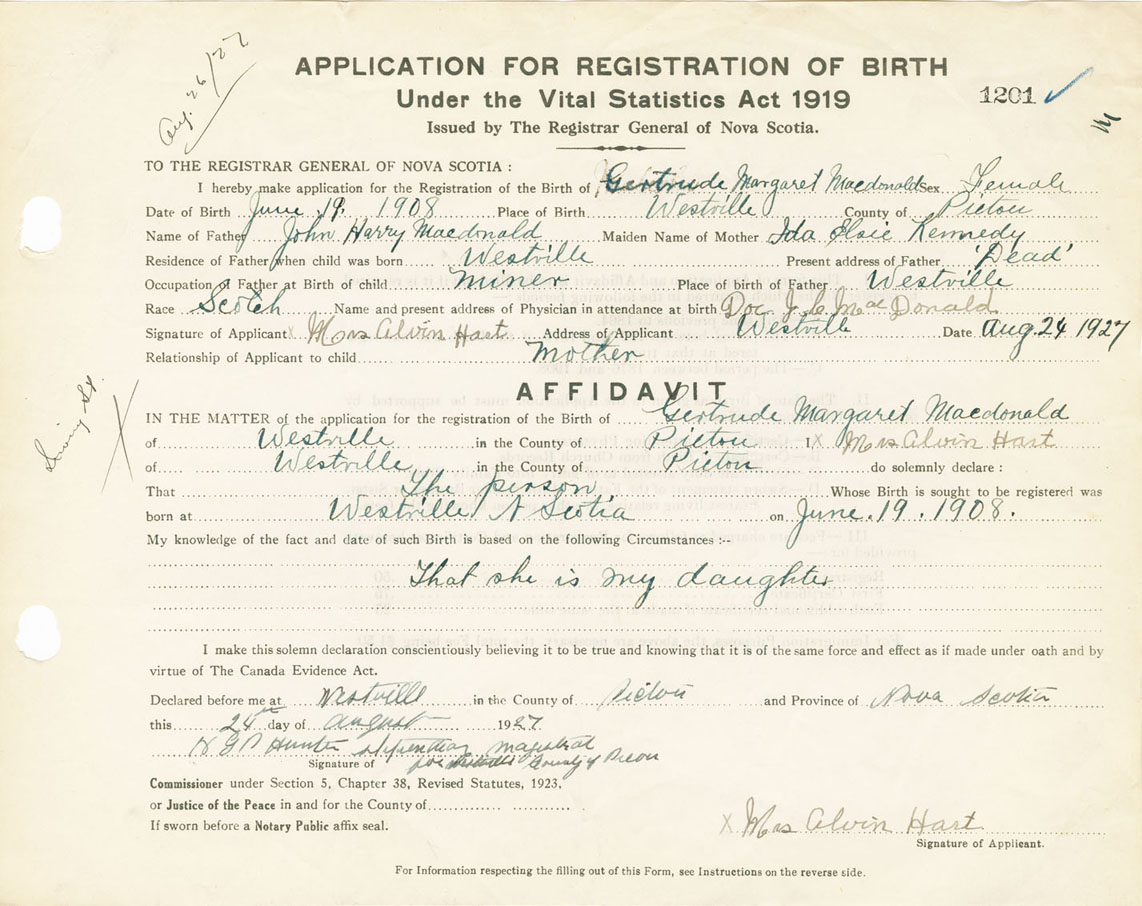 Aug. 26/27
APPLICATION FOR REGISTRATION OF BIRTH
Under the Vital Statistics Act 1919
1201
Issued by The Registrar General of Nova Scotia.
TO THE REGISTRAR GENERAL OF NOVA SCOTIA :
I hereby make application for the Registration of the Birth of Gertrude Margaret Macdonald Sex Female
Date of Birth June 19. 1908 Place of Birth Westville County of Pictou
Name of Father John Harry Macdonald Maiden Name of Mother Ida Elsie Kennedy
Residence of Father when child was born Westville Present address of Father 'Dead'
Occupation of Father at Birth of child Miner Place of birth of Father Westville
Race Scotch Name and present address of Physician in attendance at birth Doc J. C. MacDonald
Signature of Applicant X Mrs Alvin Hart Address of Applicant Westville Date Aug. 24 1927
Relationship of Applicant to child Mother
AFFIDAVIT
IN THE MATTER of the application for the registration of the Birth of Gertrude Margaret Macdonald
of Westville in the County of Pictou I X Mrs Alvin Hart
of Westville in the County of Pictou do solemnly declare :
That The person, Whose Birth is sought to be registered was
born at Westville N Scotia on June. 19. 1908.
My knowledge of the fact and date of such Birth is based on the following Circumstances :--
That she is my daughter
I make this solemn declaration conscientiously believing it to be true and knowing that it is of the same force and effect as if made under oath and by
virtue of The Canada Evidence Act.
Declared before me at Westville in the County of Pictou and Province of Nova Scotia
this 24th day of August 1927
Hunter magistrat
Signature of County of Picton
Commissioner under Section 5, Chapter 38, Revised Statutes, 1923,
or Justice of the Peace in and for the County of
If sworn before a Notary Public affix seal.
X Mrs Alvin Hart
Signature of Applicant.
For Information respecting the filling out of this Form, see Instructions on the reverse side.